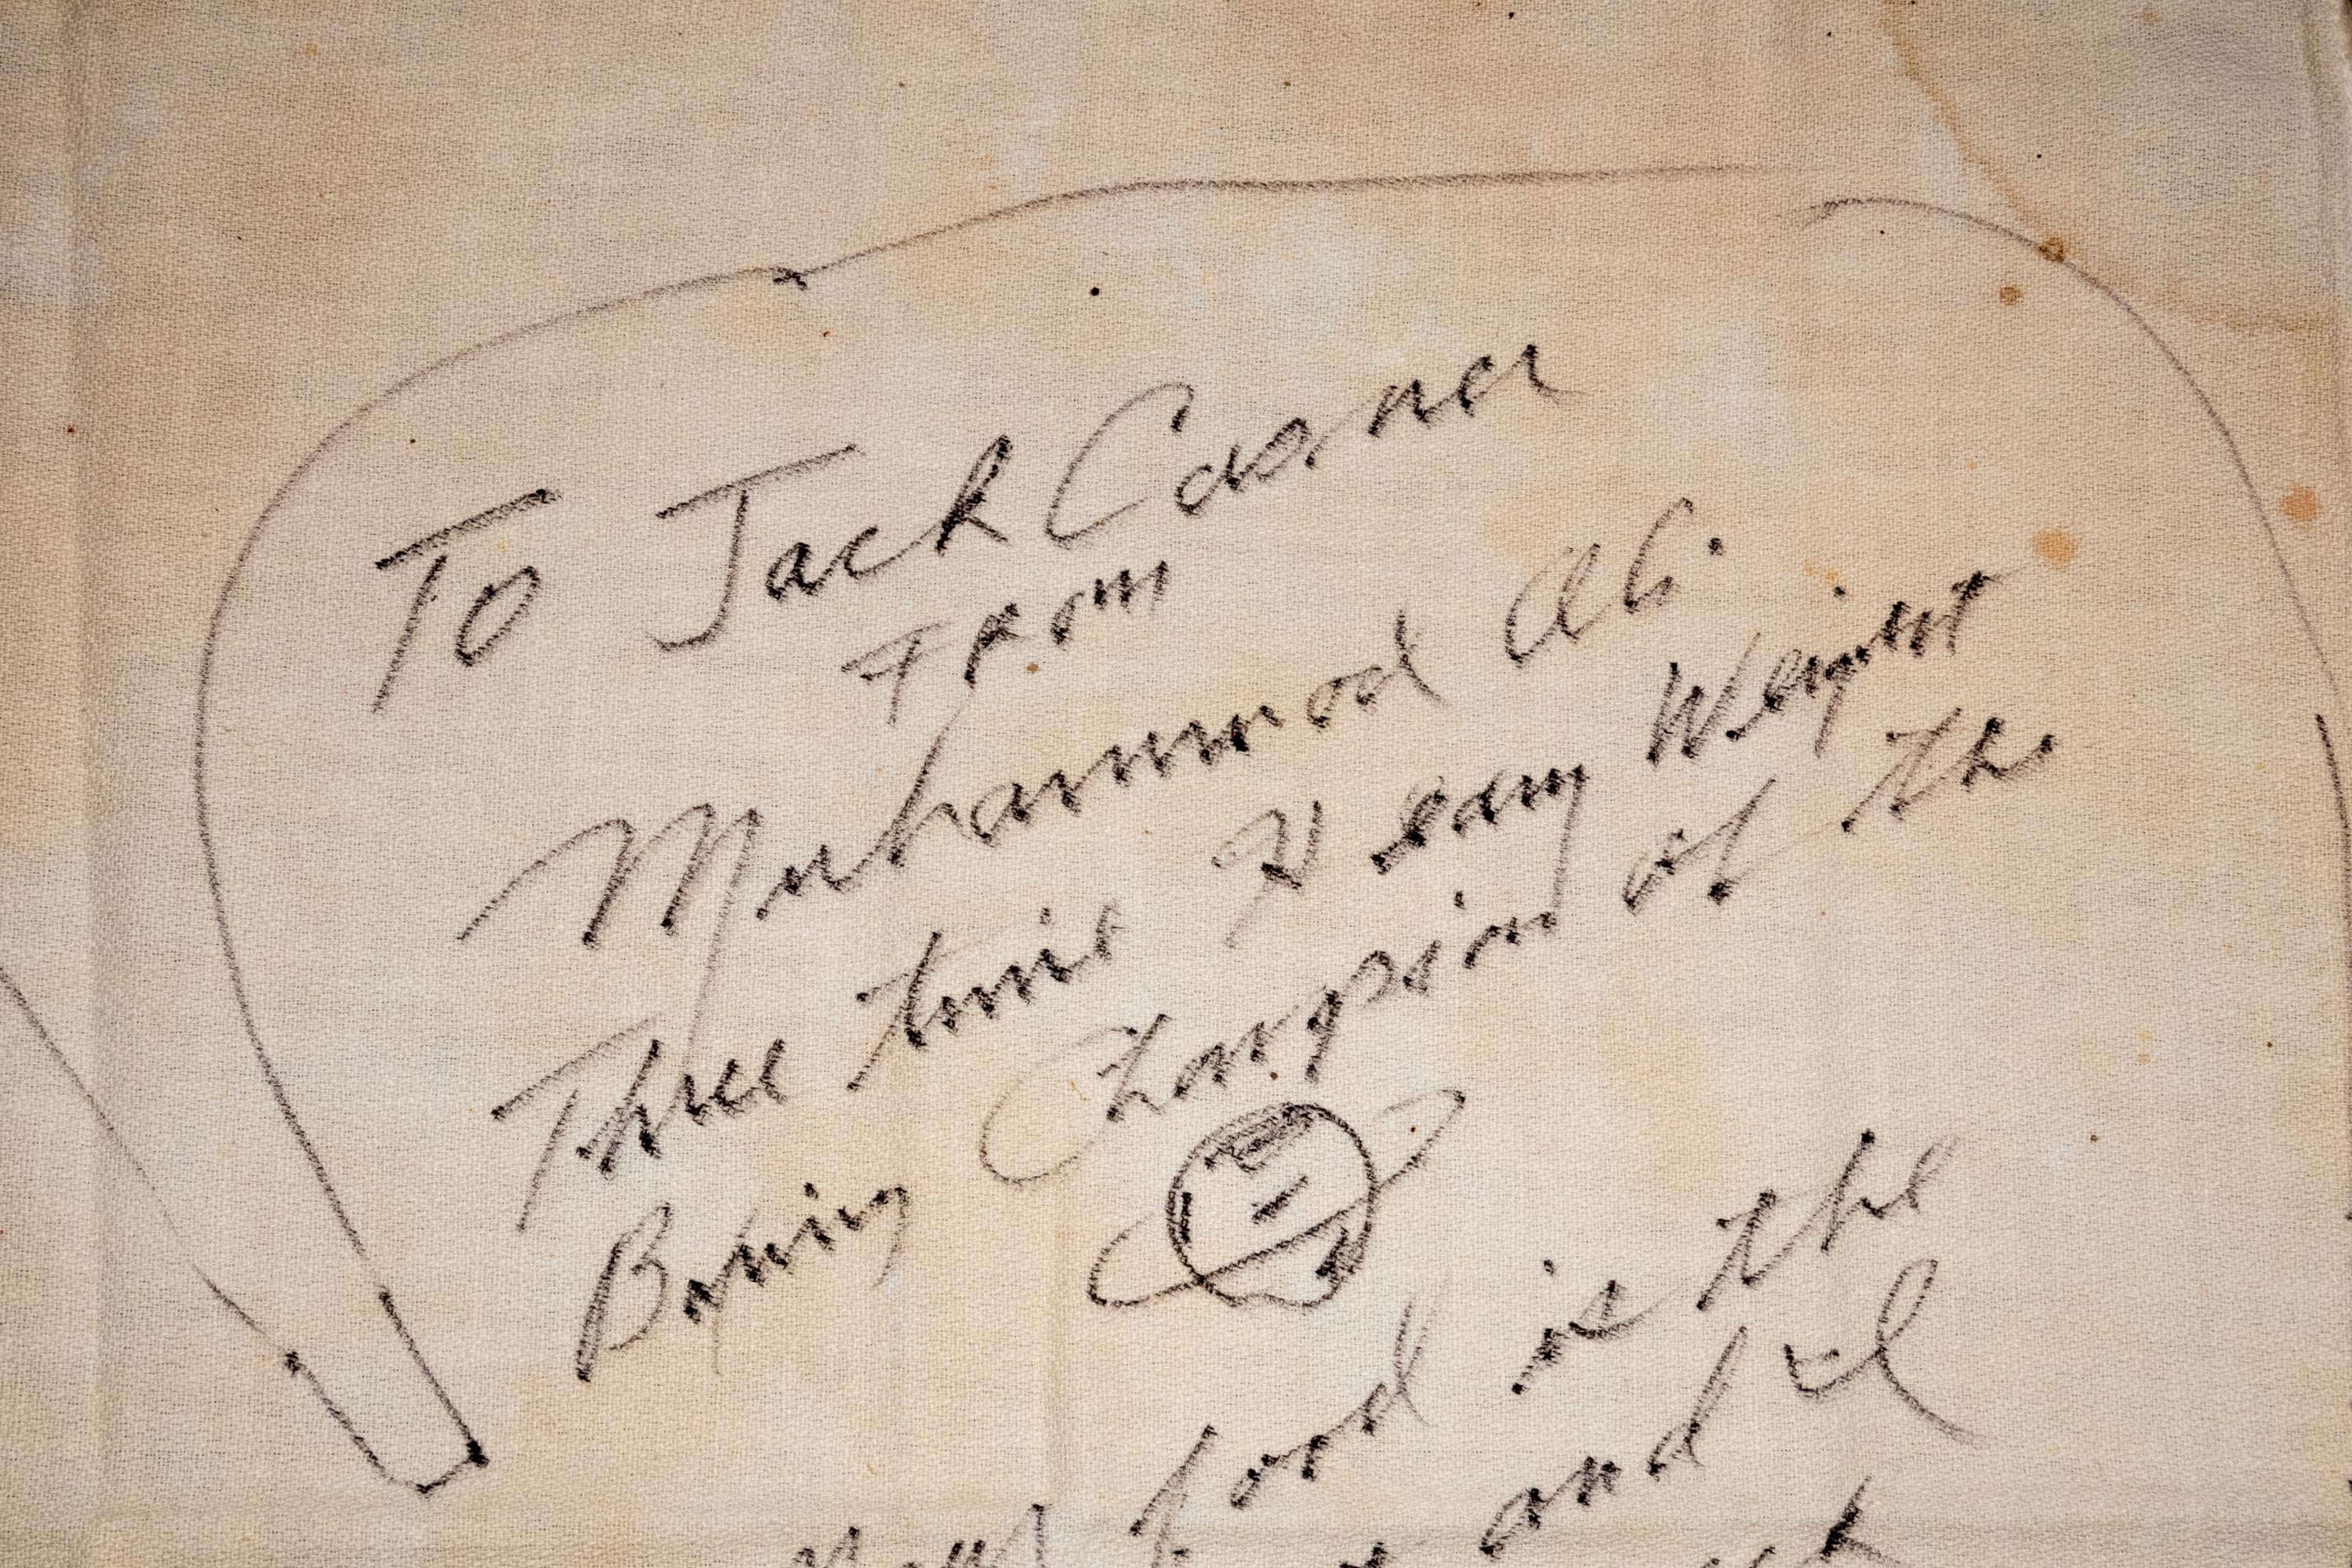 To Jack
From
Muhammad Ali
Three time Heavy Weight
Boxing Champion of the
food is the
and I